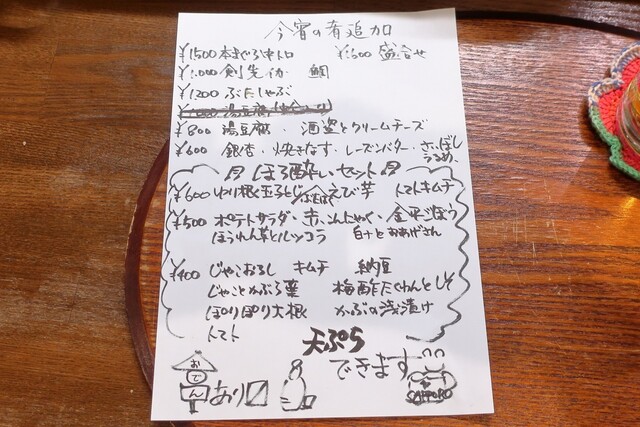 今宵の肴追加
¥1500 本まぐろ中トロ ¥1600 盛合せ
¥1.000 剣先イカ 鯛
¥1200 ぶたしゃぶ
湯豆腐
¥800 湯豆腐・酒盗とクリームチーズ
¥600 銀杏・焼きなす・レーズンバター・さんぼし
うるめ
ほろ酔いセット
¥600 ゆり根玉子とじ えび芋 トマトキムチ
¥500 ポテトサラダ・赤こんにゃく・金平ごぼう
ほうれん草とルッコラ 白すとおあげさん
¥400 じゃこおろし キムチ 納豆
じゃことかぶら葉 梅酢たくわんとしそ
ぽりぽり大根 かぶの浅漬け
トマト
天ぷら
できます
おでん
あり〼
SAPPORO